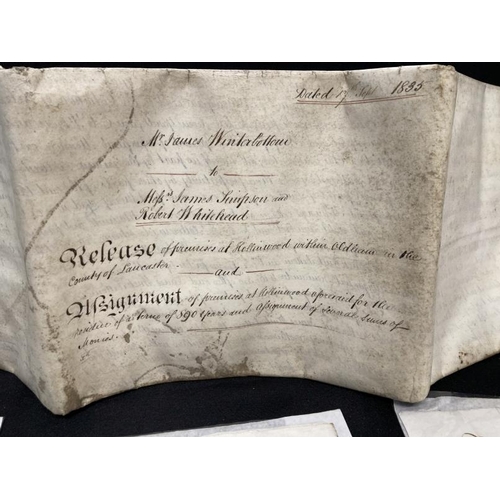 Dated 17 Sept 1835
Mr. James Winterbottom
to
Messrs. James Simpson and
Robert Whitehead
Release of premises at Hollinwood within Oldham in the
County of Lancaster
and
Assignment of premises at Hollinwood aforesaid for the
residue of a term of 890 Years and assignment of several sums of
Monies.